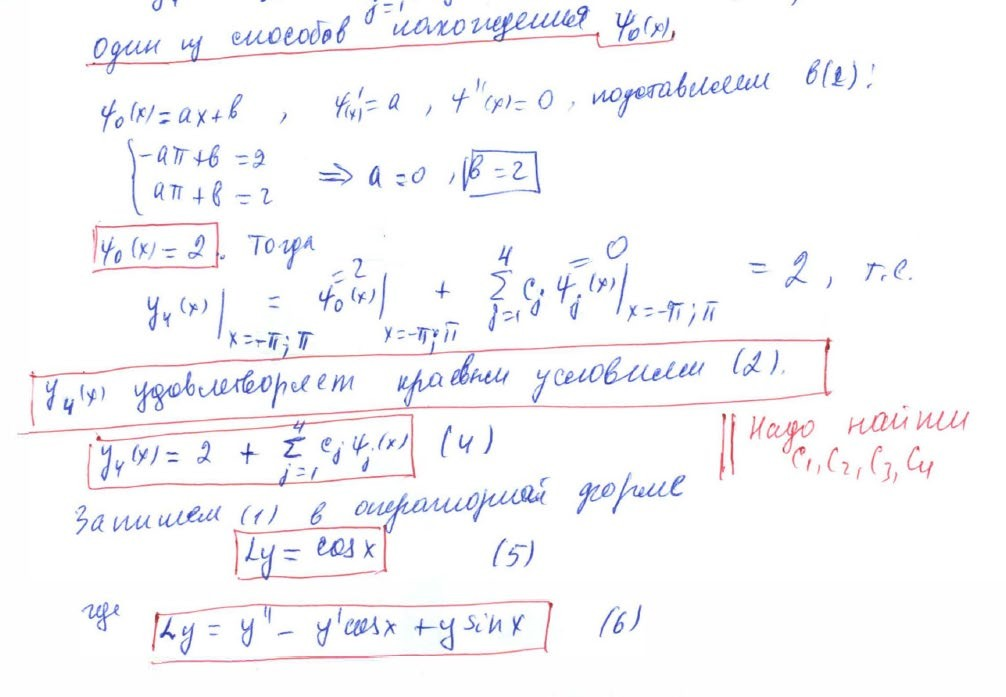 j=1
один из способов нахождения ψ₀(x).
ψ₀(x)=ax+b , ψ'(x)=a , ψ''(x)=0 , подставляем в(2):
{ -aπ+b=2
aπ+b=2 ⇒ a=0 , b=2
ψ₀(x)=2 . Тогда
y₄(x)|x=-π;π = ψ₀(x)|x=-π;π =2 + Σ⁴j=1 cj ψj(x)|x=-π;π =0 = 2, т.е.
y₄(x) удовлетворяет краевым условиям (2).
y₄(x) = 2 + Σ⁴j=1 cj ψj(x) (4)
|| Надо найти
C₁, C₂, C₃, C₄
Запишем (1) в операторной форме
Ly = cosx (5)
где Ly = y'' - y'cosx + y sinx (6)